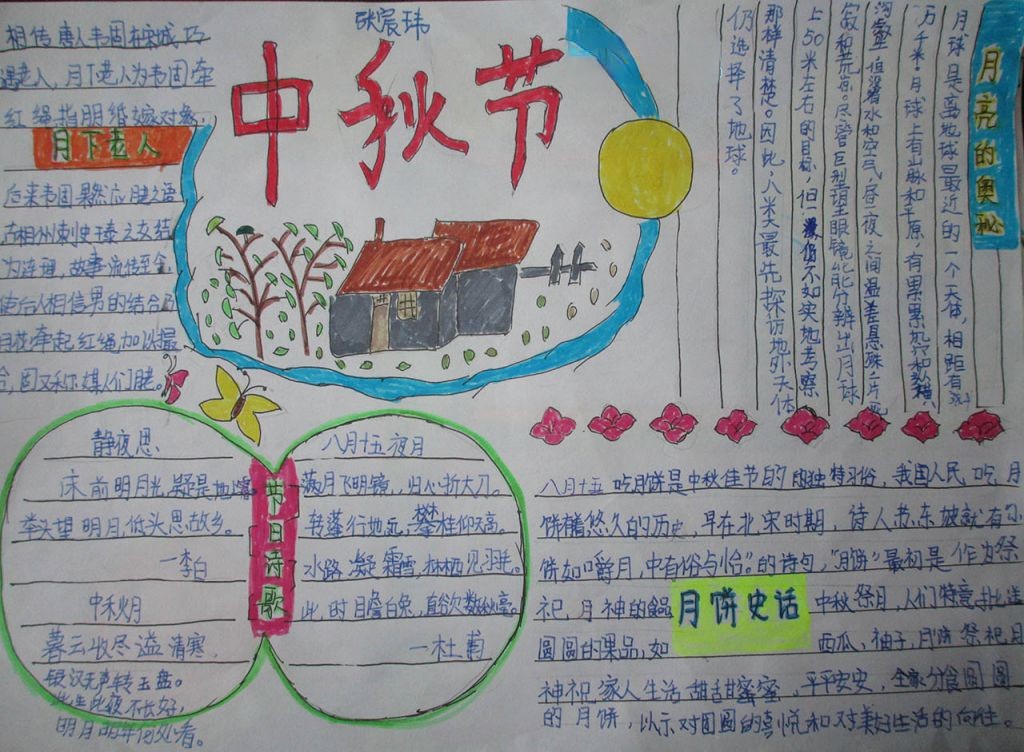 张宸玮
中秋节
相传唐人韦固在宋城巧
遇老人,月下老人为韦固牵
红绳指明婚嫁对象,
月下老人
后来韦固果然应月老之语
与相州刺史王泰之女结
为连理,故事流传至今,
使后人相信男的结合
月老牵起红绳加以撮
合,因又称媒人们月老。
月亮的奥秘
月球是离地球最近的一个天体,相距有
万千米。月球上有山脉和平原,有累累
沟壑,但没有水和空气,昼夜之间温差悬殊,一片死
寂和荒凉。尽管巨型望远镜能分辨出月球
上50米左右的目标,但仍不如实地考察
那样清楚。因此,人类最先探访地外天体
仍选择了地球。
静夜思
床前明月光,疑是地霜
举头望明月,低头思故乡。
一李白
中秋月
暮云收尽溢清寒,
银汉无声转玉盘。
此生此夜不长好,
明月明年何处看。
节日诗歌
八月十五夜月
满月飞明镜,归心折大刀。
转蓬行地远,攀桂仰天高。
水路凝霜雪,林栖见羽毛。
此时瞻白兔,直欲数秋毫。
一杜甫
八月十五吃月饼是中秋佳节的独特习俗,我国人民吃月
饼有着悠久的历史,早在北宋时期,诗人苏东坡就有
饼如嚼月,中有俗与怡”的诗句,“月饼”最初是作为祭
祀月神的食品 中秋祭月,人们特意挑选
月饼史话
圆圆的果品,如 西瓜、柚子、月饼祭祀月
神祝家人生活甜甜蜜蜜、平平安安,全家分食圆圆
的月饼,以示对团圆的喜悦和对美好生活的向往。